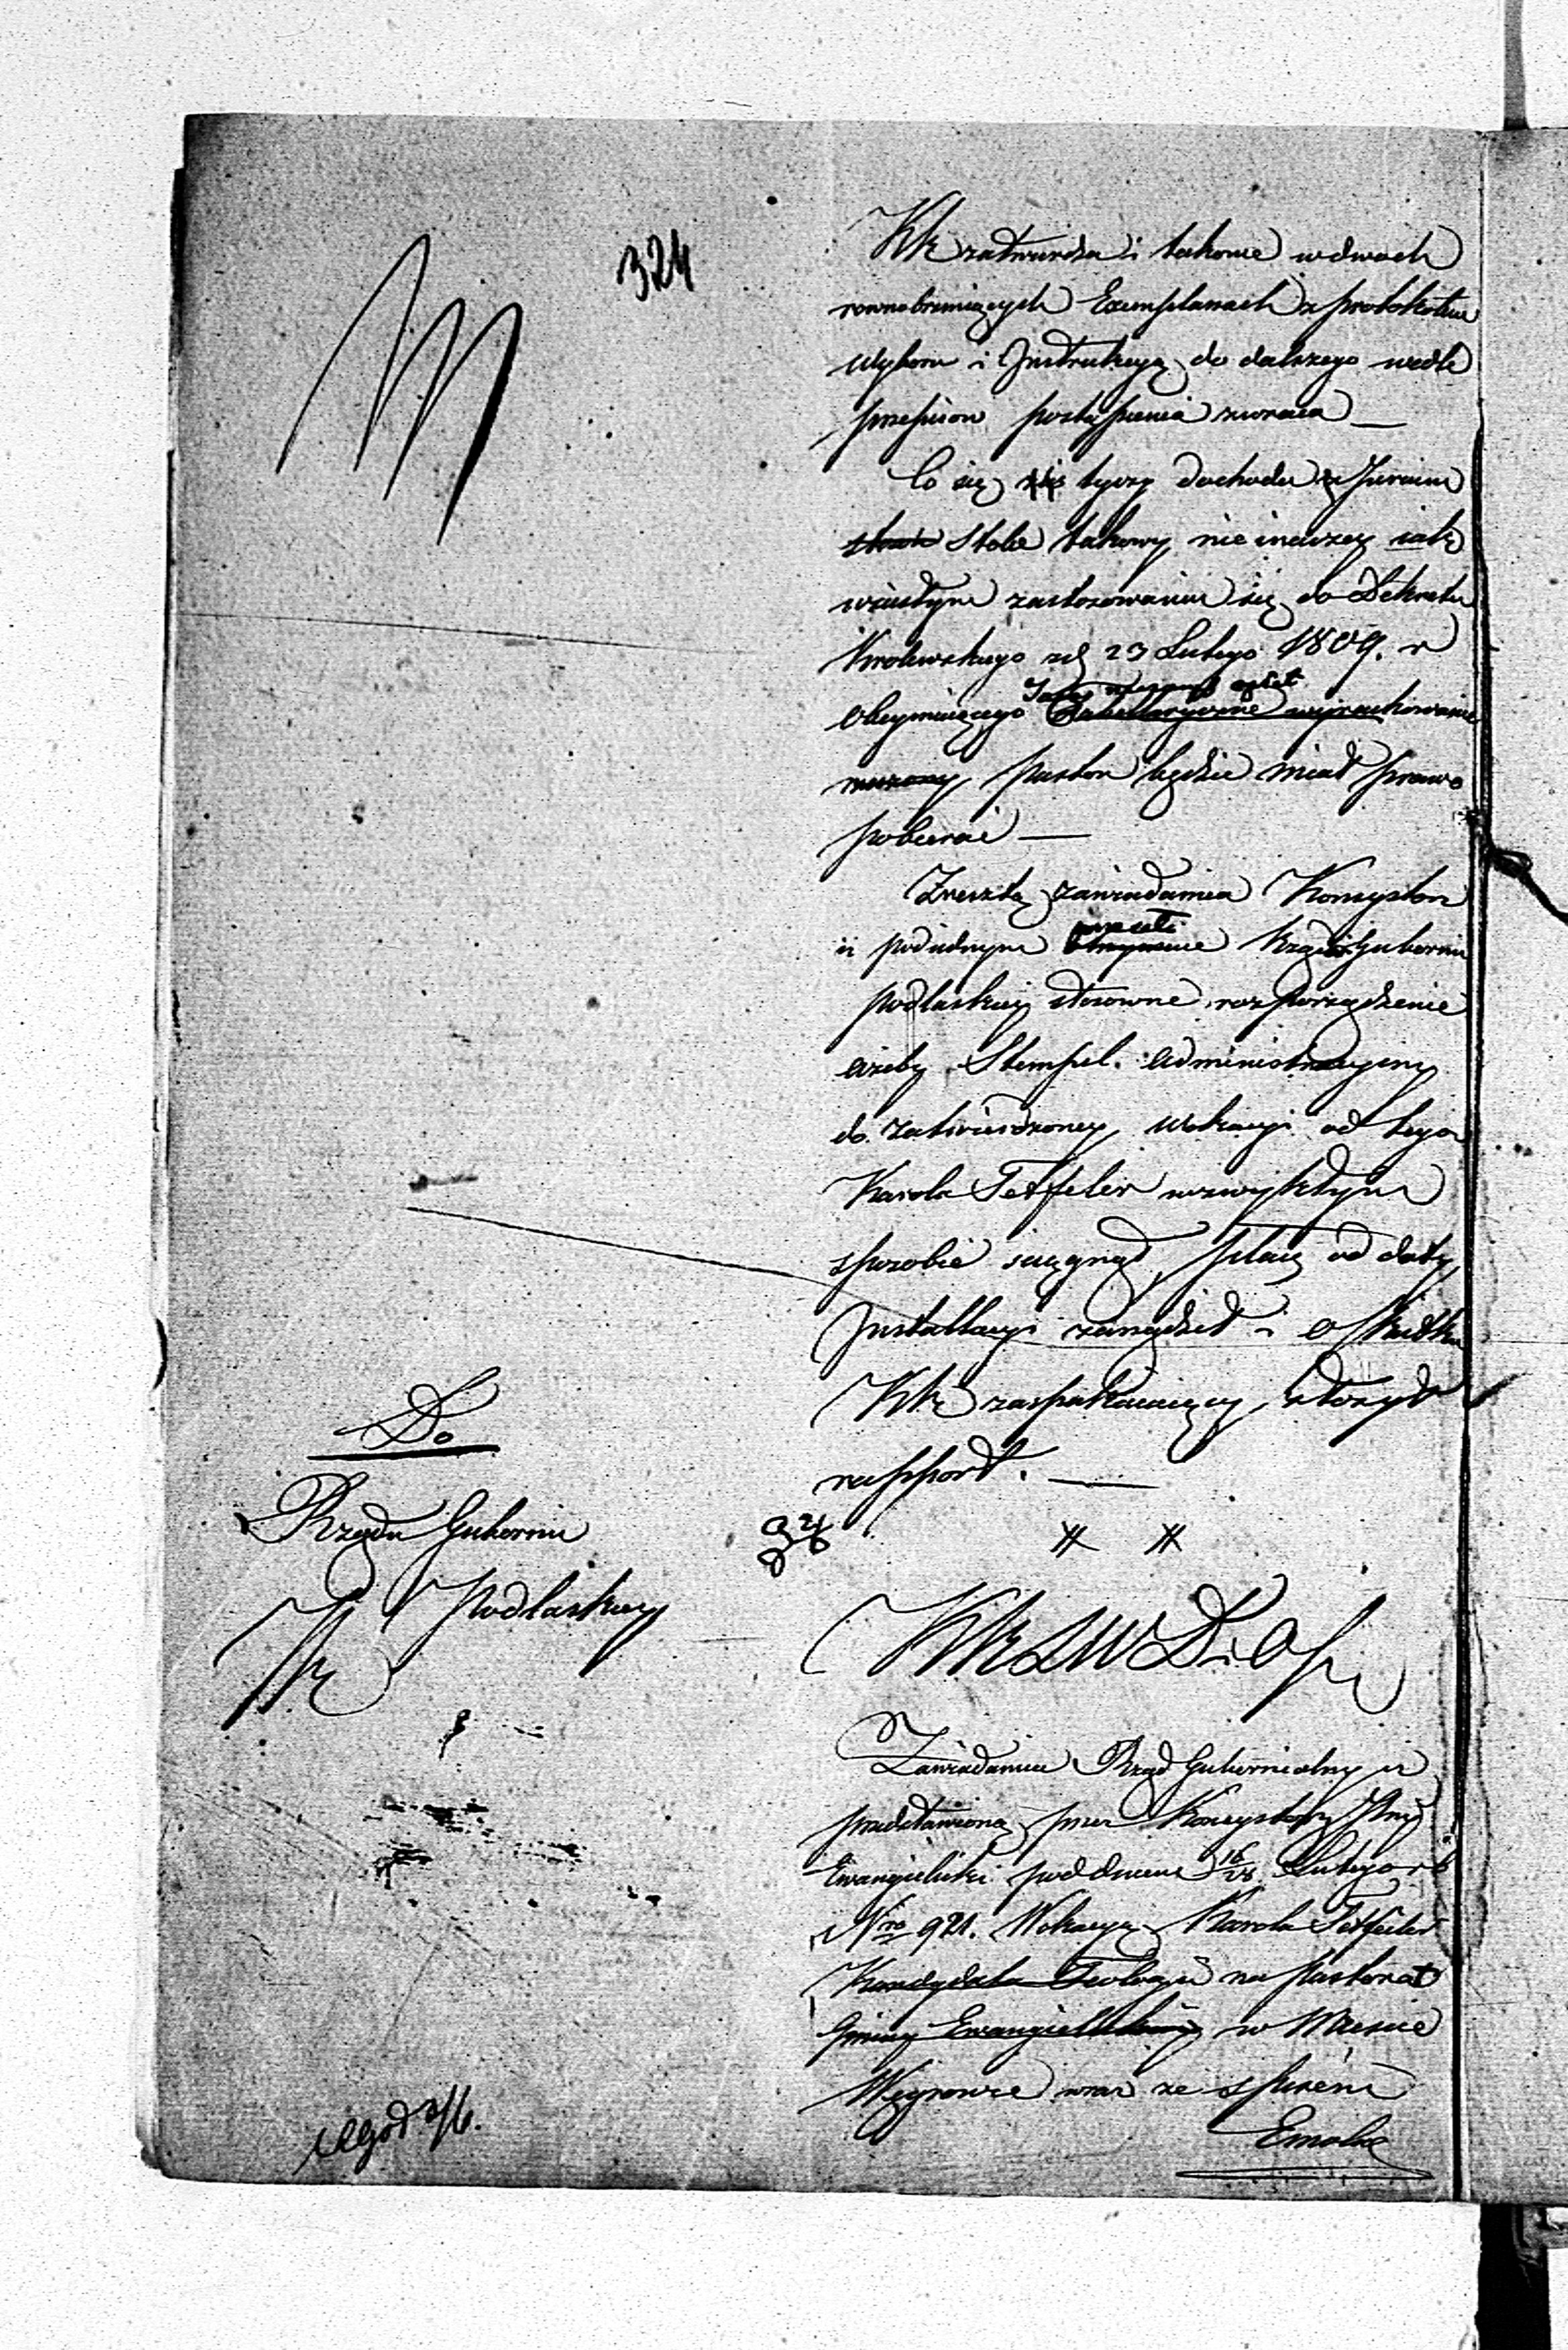 324
KR zatwierdza i takowe w dwoch
rownobrzmiących Exemplarzach z protokołem
wyboru i Instrukcyą do dalszego wedle
przepisow postąpienia zwraca —
Co się tycze dochodu z Jurium
Stolae takowy nie inaczey iak
w ścisłym zastosowaniu się do Dekretu
Krolewskiego z d 23 Lutego 1809. r
obeymuiącego
pastor będzie miał prawo
pobierać —
Zresztą zawiadamia Konsystorz
iż pod iednym Rządowi Gubernii
Podlaskiey stosowne rozporządzenie
ażeby Stempel administracyiny
do zatwierdzoney wokacyi od tegoż
Karola Tetfeler w zwykłym
sposobie ściągnął, płacę od daty
Installacyi zarządził i o skutku
KR zaspakaiaiący złożył
rapport. —
Do
Rządu Gubernii
Podlaskiey
KRSWDiOP
Zawiadamia Rząd Gubernialny iż
przedstawioną przez Konsystorz Jlny
Ewangielicki pod dniem 16/28 Lutego r b
Nro 921. Wokacyę Karola Tetfeler
Kandydata Teologii na pastorat
Gminy Ewangielickiey w Mieście
Węgrowie wraz ze spisem